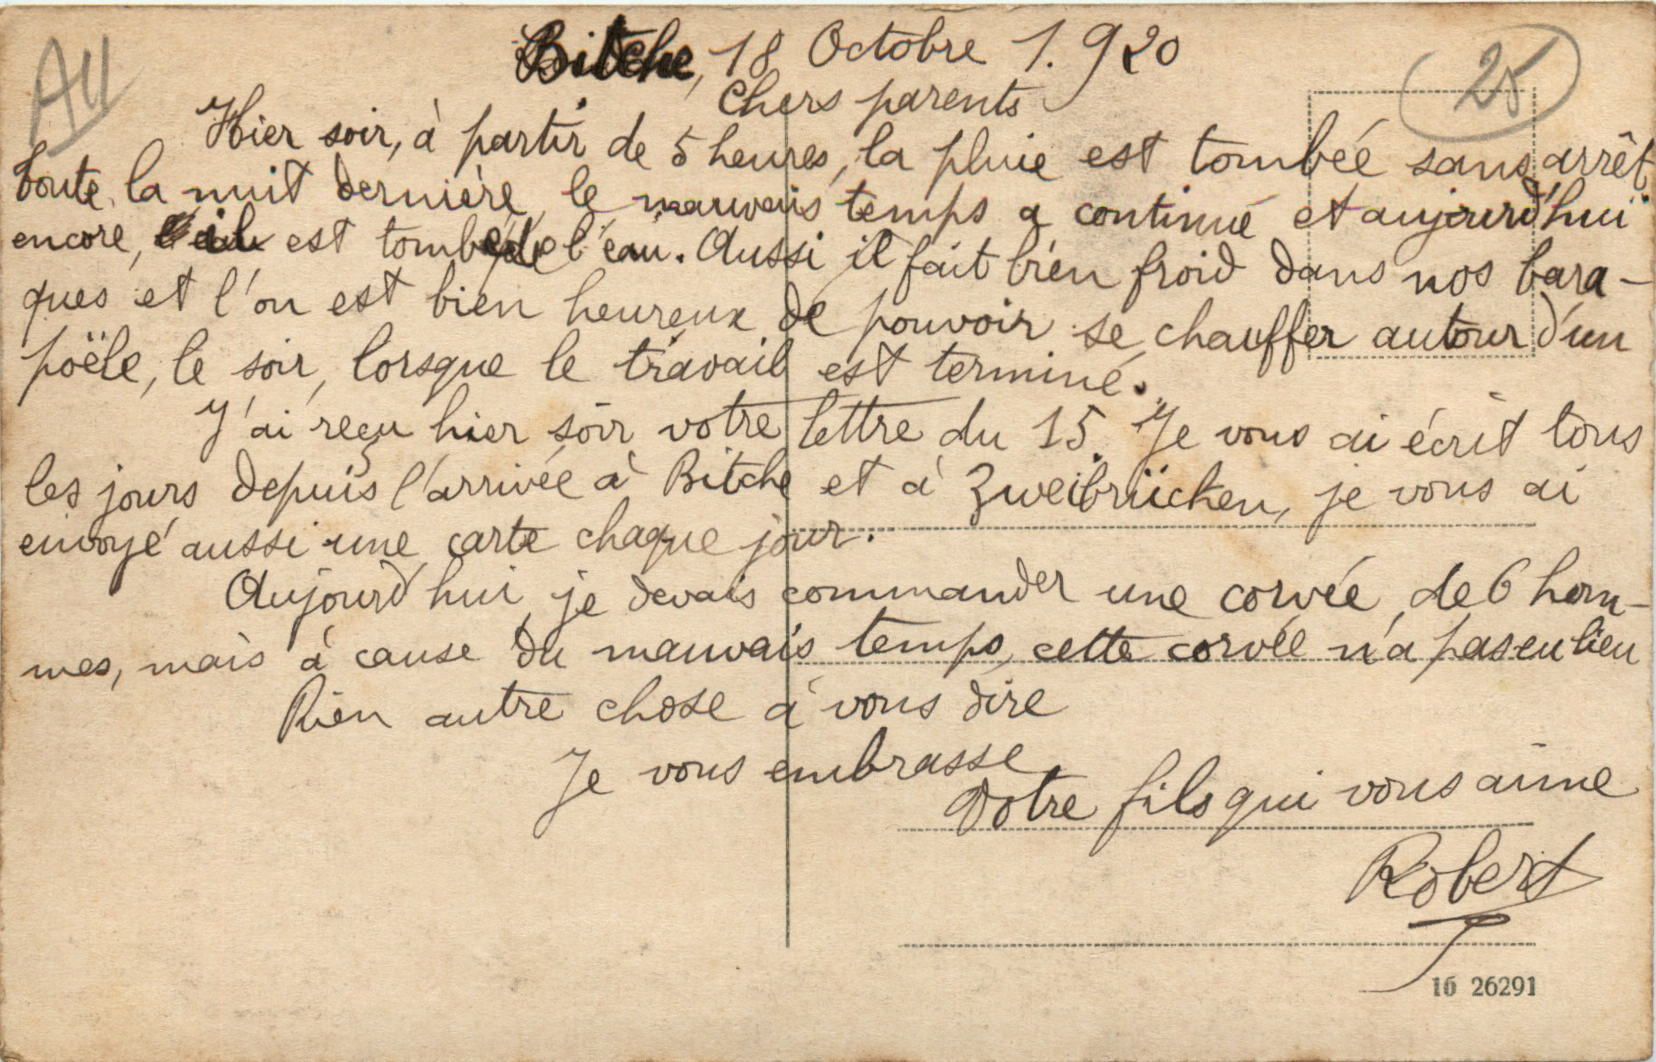 Bitche, 18 Octobre 1.920
25
Chers parents
Hier soir, à partir de 5 heures, la pluie est tombée sans arrêt
toute la nuit dernière, le mauvais temps a continué et aujourd'hui
encore, il est tombé de l'eau. Aussi il fait bien froid dans nos bara-
ques et l'on est bien heureux de pouvoir se chauffer autour d'un
poële, le soir, lorsque le travail est terminé.
J'ai reçu hier soir votre lettre du 15. Je vous ai écrit tous
les jours depuis l'arrivée à Bitche et à Zweibrücken, je vous ai
envoyé aussi une carte chaque jour.
Aujourd'hui, je devais commander une corvée de 6 hom-
mes, mais à cause du mauvais temps, cette corvée n'a pas eu lieu
Rien autre chose à vous dire
Je vous embrasse
Votre fils qui vous aime
Robert
16 26291